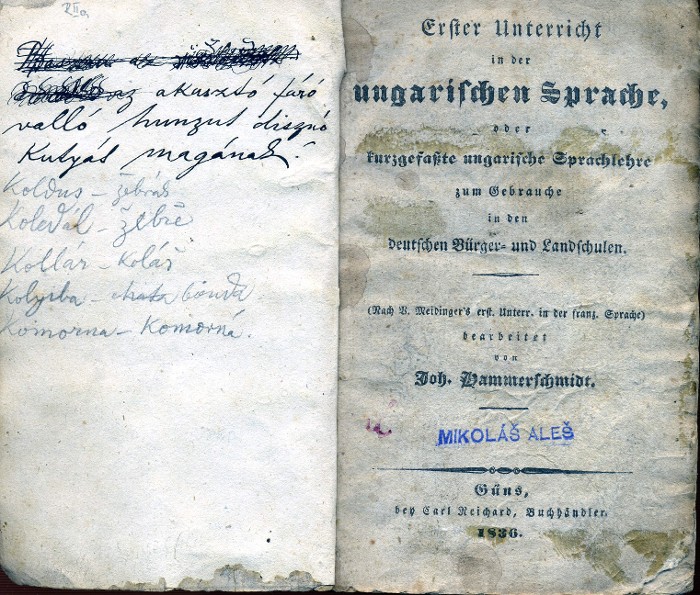 az akasztó fáró
valló hunzut disznó
Kutyás magának!
Koldus – žebrák
Koledál – žebře
Kollár – Kolář
Kolyiba – chata bouda
Komorna – Komorná.
Erster Unterricht
in der
ungarischen Sprache,
oder
kurzgefaßte ungarische Sprachlehre
zum Gebrauche
in den
deutschen Bürger- und Landschulen.
(Nach V. Meidinger's erst. Unterr. in der franz. Sprache)
bearbeitet
von
Joh. Hammerschmidt.
MIKOLÁŠ ALEŠ
Güns,
bey Carl Reichard, Buchhändler.
1836.